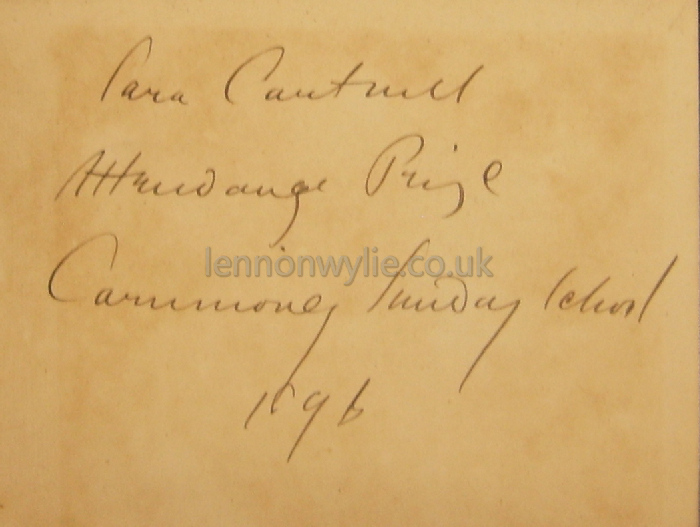 Sara Cantrell
Attendance Prize
lennonwylie.co.uk
Carnmoney Sunday School
1896